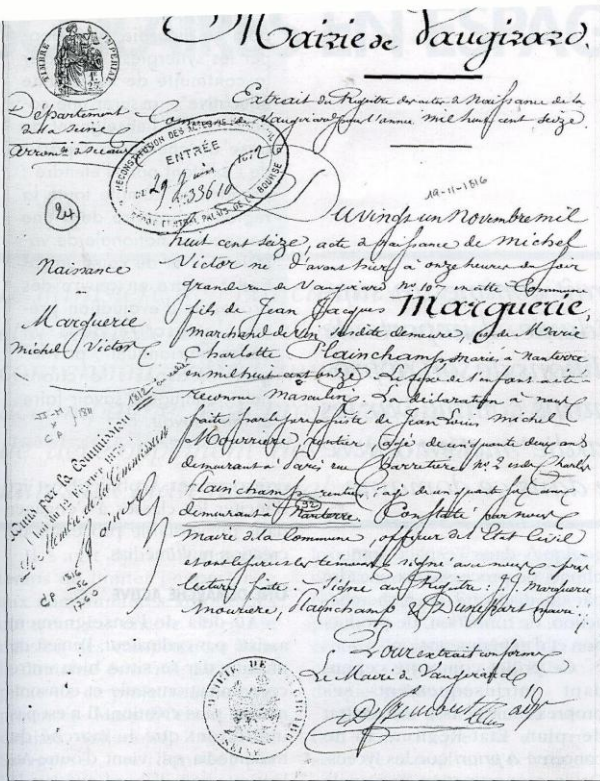 TIMBRE IMPERIAL
Mairie de Vaugirard
Département
de la Seine
Arrond.t de Sceaux
Extrait du Registre des actes de Naissance de la
Commune de Vaugirard pour l'année mil huit cent seize
RECONSTITUTION DES ACTES DE
ENTRÉE
33610
PALAIS DE LA BOURSE
24
19-11-1816
Du vingt un Novembre mil
huit cent seize, acte de Naissance de Michel
Victor né d'avant hier à onze heures du soir
grande rue de Vaugirard N° 107 en cette Commune
fils de Jean Jacques Marguerie,
marchand de vin susdite demeure, et de Marie
Charlotte Plainchamp, mariés à Nanterre
en mil huit cent onze. Le sexe de l'enfant a été
reconnu Masculin. La déclaration à nous
faite par le père assisté de Jean Louis Michel
Mourriere, rentier, agé de cinquante deux ans
demeurant à Paris rue N° 2 et de Charles
Plainchamp, rentier, agé de cinquante six ans
demeurant à Nanterre. Constaté par nous
maire de la Commune, officier de l'Etat Civil
et ont le père et les témoins signé avec nous après
lecture faite. Signé au Registre: J. J. Marguerie
Mouriere, Plainchamp &
Pour extrait conforme
Le Maire de Vaugirard
Naissance
Marguerie
Michel Victor
Admis par la Commission
Loi du 12 Février 1872
Le Membre de la Commission
1816
MAIRIE DE
SEINE